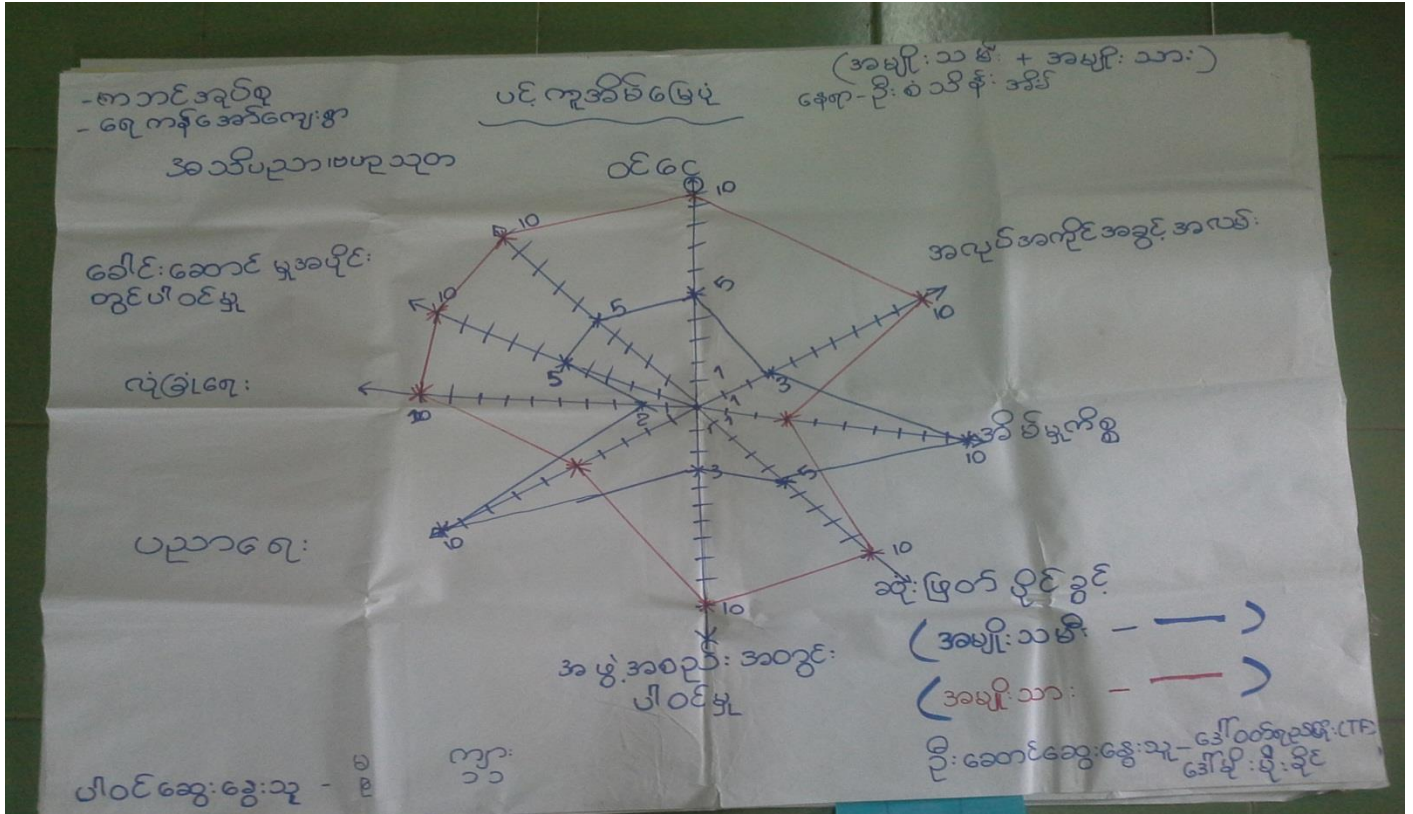 - စာဘင်အုပ်စု
- ရေကန်အောင်ကျေးရွာ
ပင့်ကူအိမ်မြေပုံ
(အမျိုးသမီး + အမျိုးသား)
နေရာ - ဦးစံသိန်းအိမ်
အသိပညာ၊ဗဟုသုတ
ဝင်ငွေ
အလုပ်အကိုင်အခွင့်အလမ်း
ခေါင်းဆောင်မှုအပိုင်း
တွင်ပါဝင်မှု
လုံခြုံရေး
အိမ်မှုကိစ္စ
ပညာရေး
ဆုံးဖြတ်ပိုင်ခွင့်
အဖွဲ့အစည်းအတွင်း
ပါဝင်မှု
10
10
10
10
10
10
10
10
10
5
5
5
5
3
3
2
1
1
1
(အမျိုးသမီး - )
(အမျိုးသား - )
ပါဝင်ဆွေးနွေးသူ -
မ ကျား
၅ ၁၁
ဦးဆောင်ဆွေးနွေးသူ - ဒေါ် (TF)
ဒေါ်မိုးမိုးခိုင်